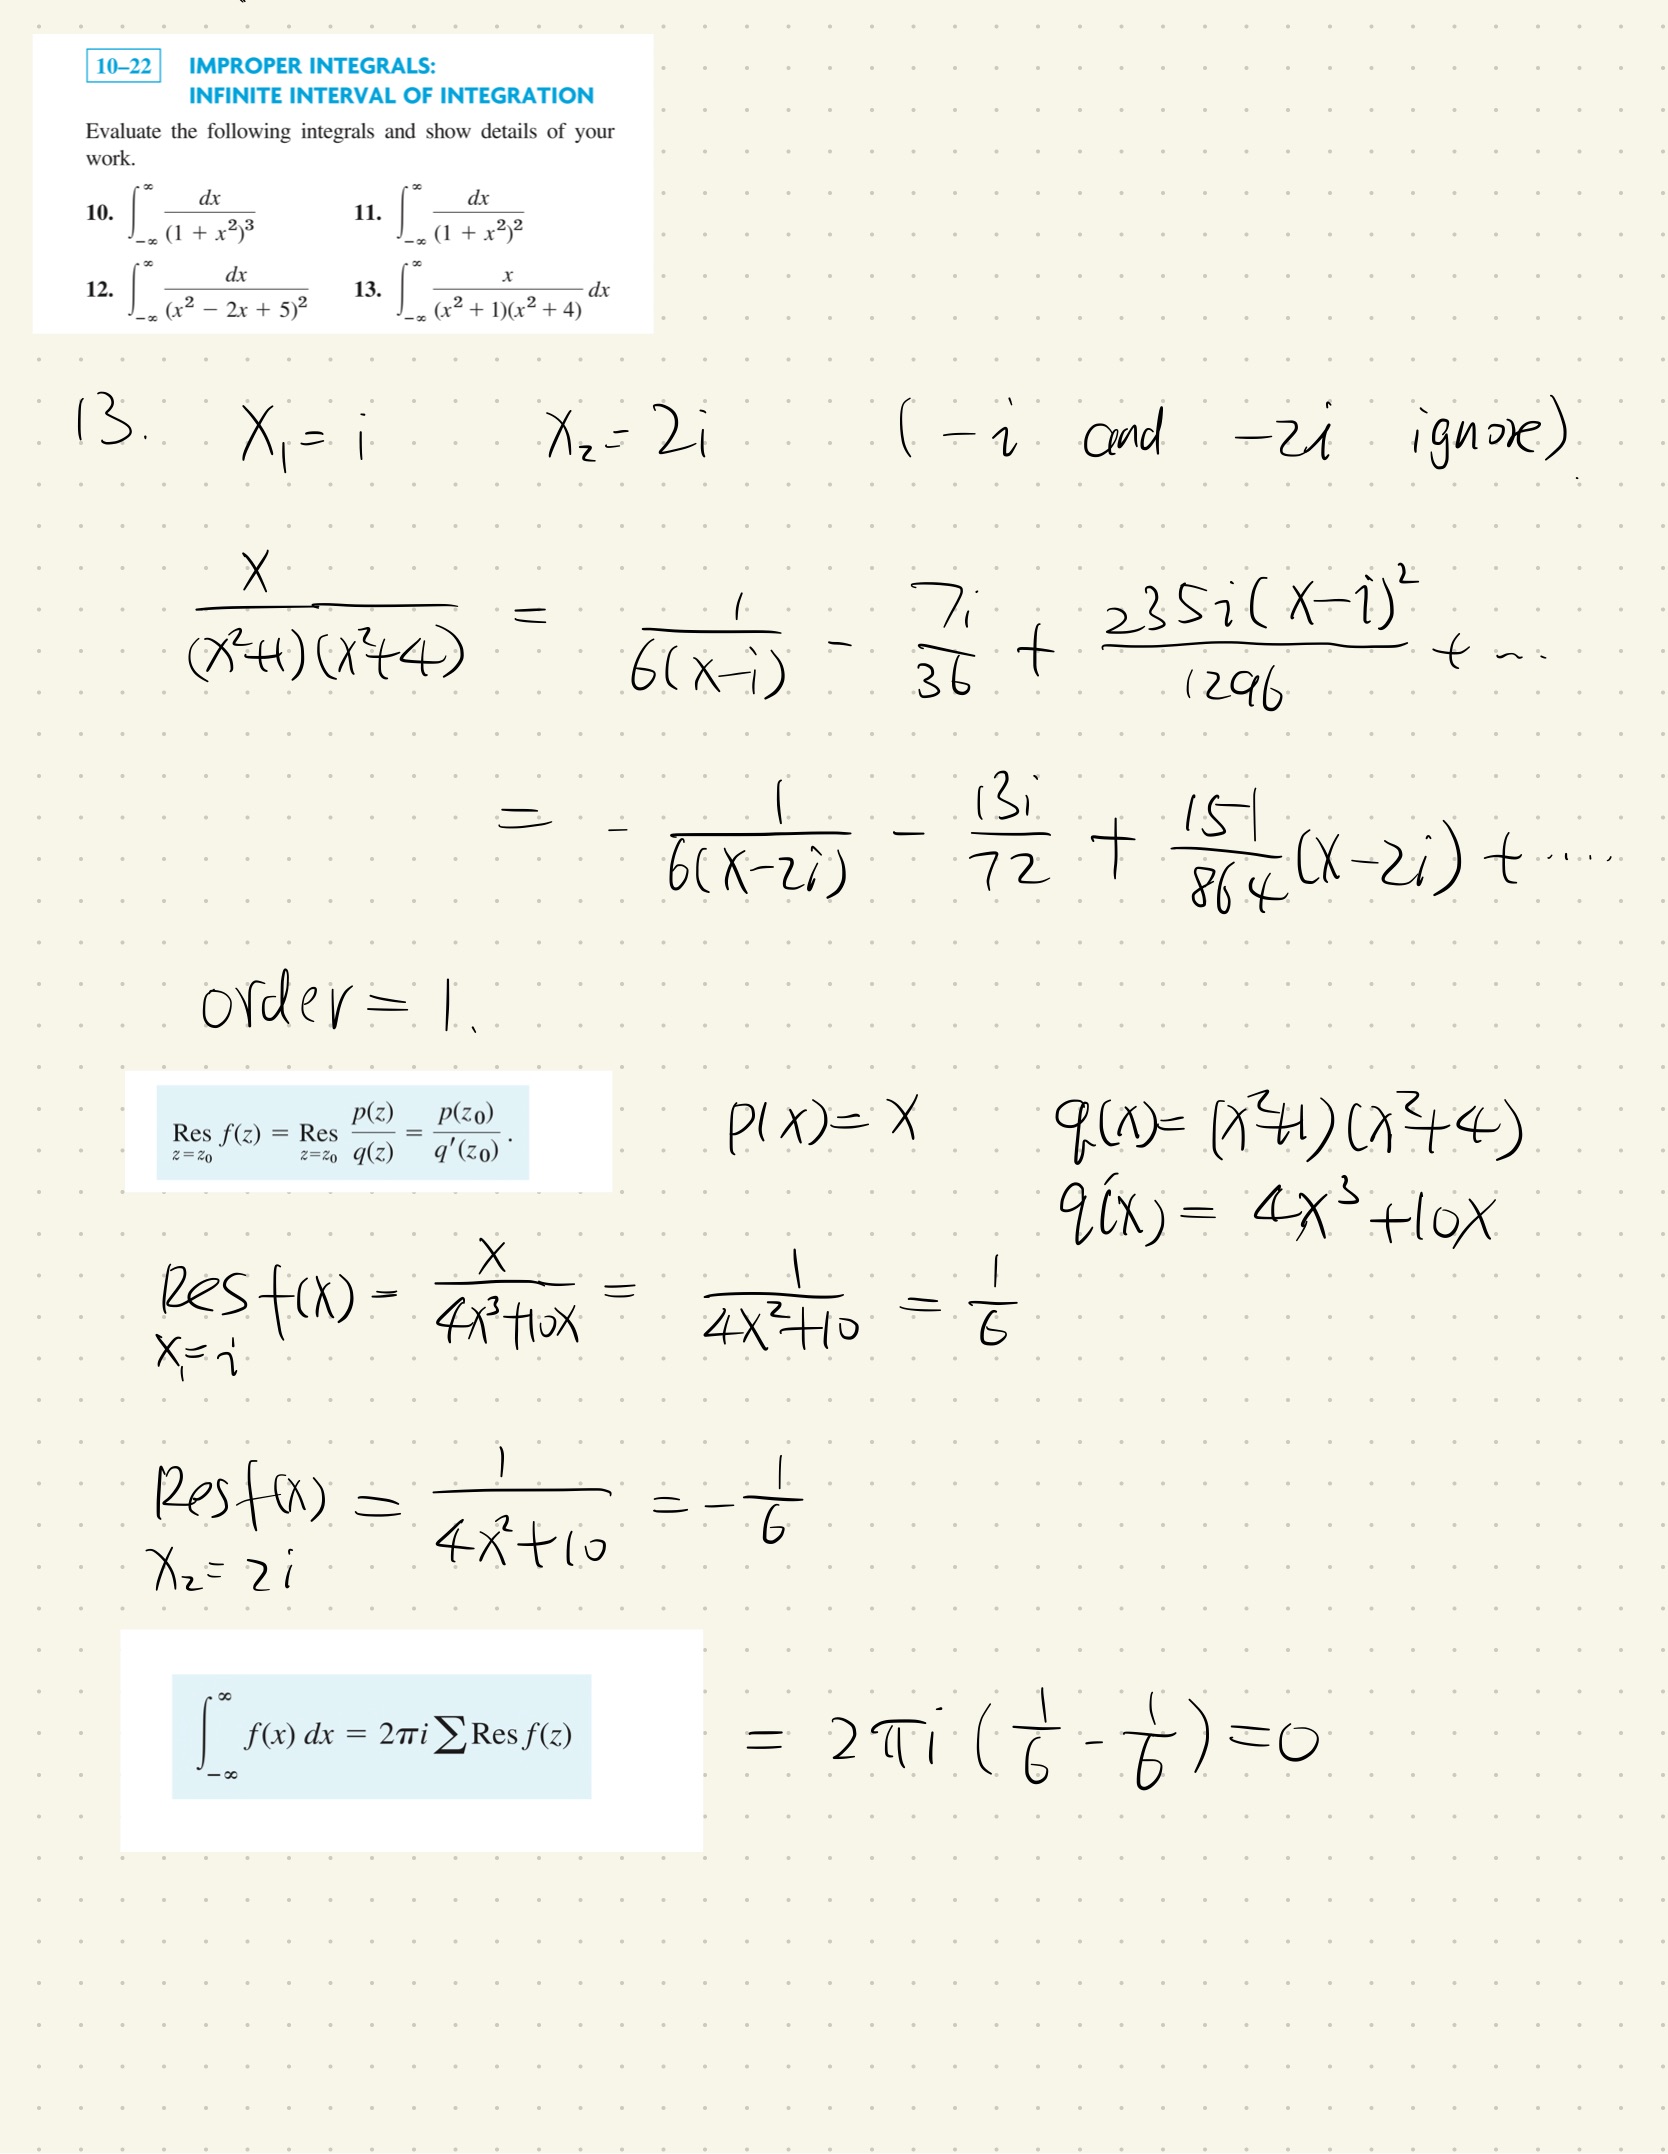 10–22 IMPROPER INTEGRALS:
INFINITE INTERVAL OF INTEGRATION
Evaluate the following integrals and show details of your
work.
10. ∫_{-∞}^{∞} dx/(1 + x²)³ 11. ∫_{-∞}^{∞} dx/(1 + x²)²
12. ∫_{-∞}^{∞} dx/(x² − 2x + 5)² 13. ∫_{-∞}^{∞} x/((x² + 1)(x² + 4)) dx
13. X₁ = i X₂ = 2i (-i and -2i ignore).
X/((X²+1)(X²+4)) = 1/(6(X-i)) - 7i/36 + 235i(X-i)²/1296 + ...
= - 1/(6(X-2i)) - 13i/72 + 151/864 (X-2i) + .....
order = 1.
Res_{z=z₀} f(z) = Res_{z=z₀} p(z)/q(z) = p(z₀)/q′(z₀). P(X) = X q(X) = (X²+1)(X²+4)
q'(X) = 4X³+10X
Res f(X) = X/(4X³+10X) = 1/(4X²+10) = 1/6
X₁ = i
Res f(X) = 1/(4X²+10) = - 1/6
X₂ = 2i
∫_{-∞}^{∞} f(x) dx = 2πi ∑ Res f(z) = 2πi (1/6 - 1/6) = 0